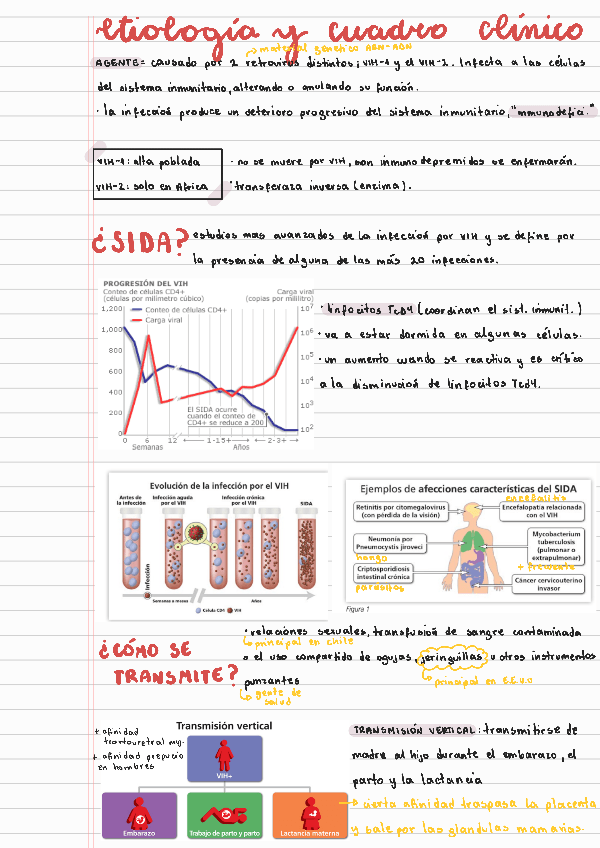 etiología y cuadro clínico
→ material genético ARN-ADN
AGENTE= causado por 2 retravirus distintos; VIH-1 y el VIH-2. Infecta a las células
del sistema inmunitario, alterando o anulando su función.
· la infección produce un deterioro progresivo del sistema inmunitario, "inmunodefici."
VIH-1: alta poblada
VIH-2: solo en Africa
· no se muere por VIH, son inmunodepremidos se enfermarán.
· transferaza inversa (enzima).
¿SIDA?
estudios mas avanzados de la infección por VIH y se define por
la presencia de alguna de las más 20 infecciones.
PROGRESIÓN DEL VIH
Conteo de células CD4+
(células por milímetro cúbico)
Carga viral
(copias por mililitro)
Conteo de células CD4+
Carga viral
1,200
1,000
800
600
400
200
0
10⁷
10⁶
10⁵
10⁴
10³
10²
El SIDA ocurre
cuando el conteo de
CD4+ se reduce a 200
0 6 12 ←1-15+→ ←2-3+→
Semanas Años
· linfocitos Tcd4 (coordinan el sist. inmunit.)
· va a estar dormida en algunas células.
· un aumento cuando se reactiva y es crítico
a la disminución de linfocitos Tcd4.
Evolución de la infección por el VIH
Antes de
la infección
Infección aguda
por el VIH
Infección crónica
por el VIH
SIDA
Infección
Semanas a meses
Años
Célula CD4
VIH
Ejemplos de afecciones características del SIDA
encefalitis
Retinitis por citomegalovirus
(con pérdida de la visión)
Encefalopatía relacionada
con el VIH
Neumonía por
Pneumocystis jiroveci
hongo
Mycobacterium
tuberculosis
(pulmonar o
extrapulmonar)
+ frecuente
Criptosporidiosis
intestinal crónica
parásitos
Cáncer cervicouterino
invasor
Figura 1
¿CÓMO SE
TRANSMITE?
· relaciones sexuales, transfusión de sangre contaminada
→ principal en chile
o el uso compartido de agujas, jeringuillas u otros instrumentos
→ principal en E.E.U.U
punzantes
→ gente de
salud
+ afinidad
+ afinidad prepucio
en hombres
Transmisión vertical
VIH+
Embarazo
Trabajo de parto y parto
Lactancia materna
TRANSMISIÓN VERTICAL: transmitirse de
madre al hijo durante el embarazo, el
parto y la lactancia
→ cierta afinidad traspasa la placenta
y sale por las glandulas mamarias.